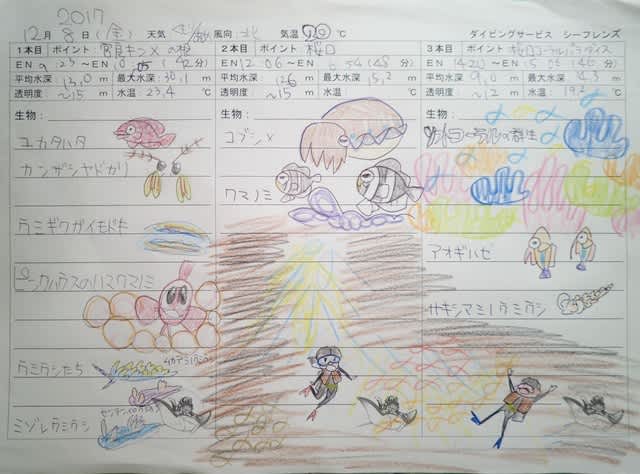 2017
12月 8日 (金) 天気 風向 北 気温 20 ℃ ダイビングサービス シーフレンズ
1本目 ポイント
EN 9:23～EN 10:05 (42分)
平均水深 13.0 m 最大水深: 30.1 m
透明度 ~15 m 水温: 23.4 ℃
生物:
ユカタハタ
カンザシヤドカリ
ウミギクガイモドキ
ピンクハウスのハマクマノミ
ウミウシたち
ミゾレウミウシ
2本目 ポイント 桜口
EN 12:06～EN 12:54 (48分)
平均水深 12.6 m 最大水深: 15.2 m
透明度 ~15 m 水温: ℃
生物:
コブシメ
クマノミ
3本目 ポイント
EN 14:21～EN 15:06 (46分)
平均水深 9.0 m 最大水深
透明度 ~12 m 水温: 19.2 ℃
生物: ソフトコーラルの群生
アオギハゼ
サキシマミノウミウシ